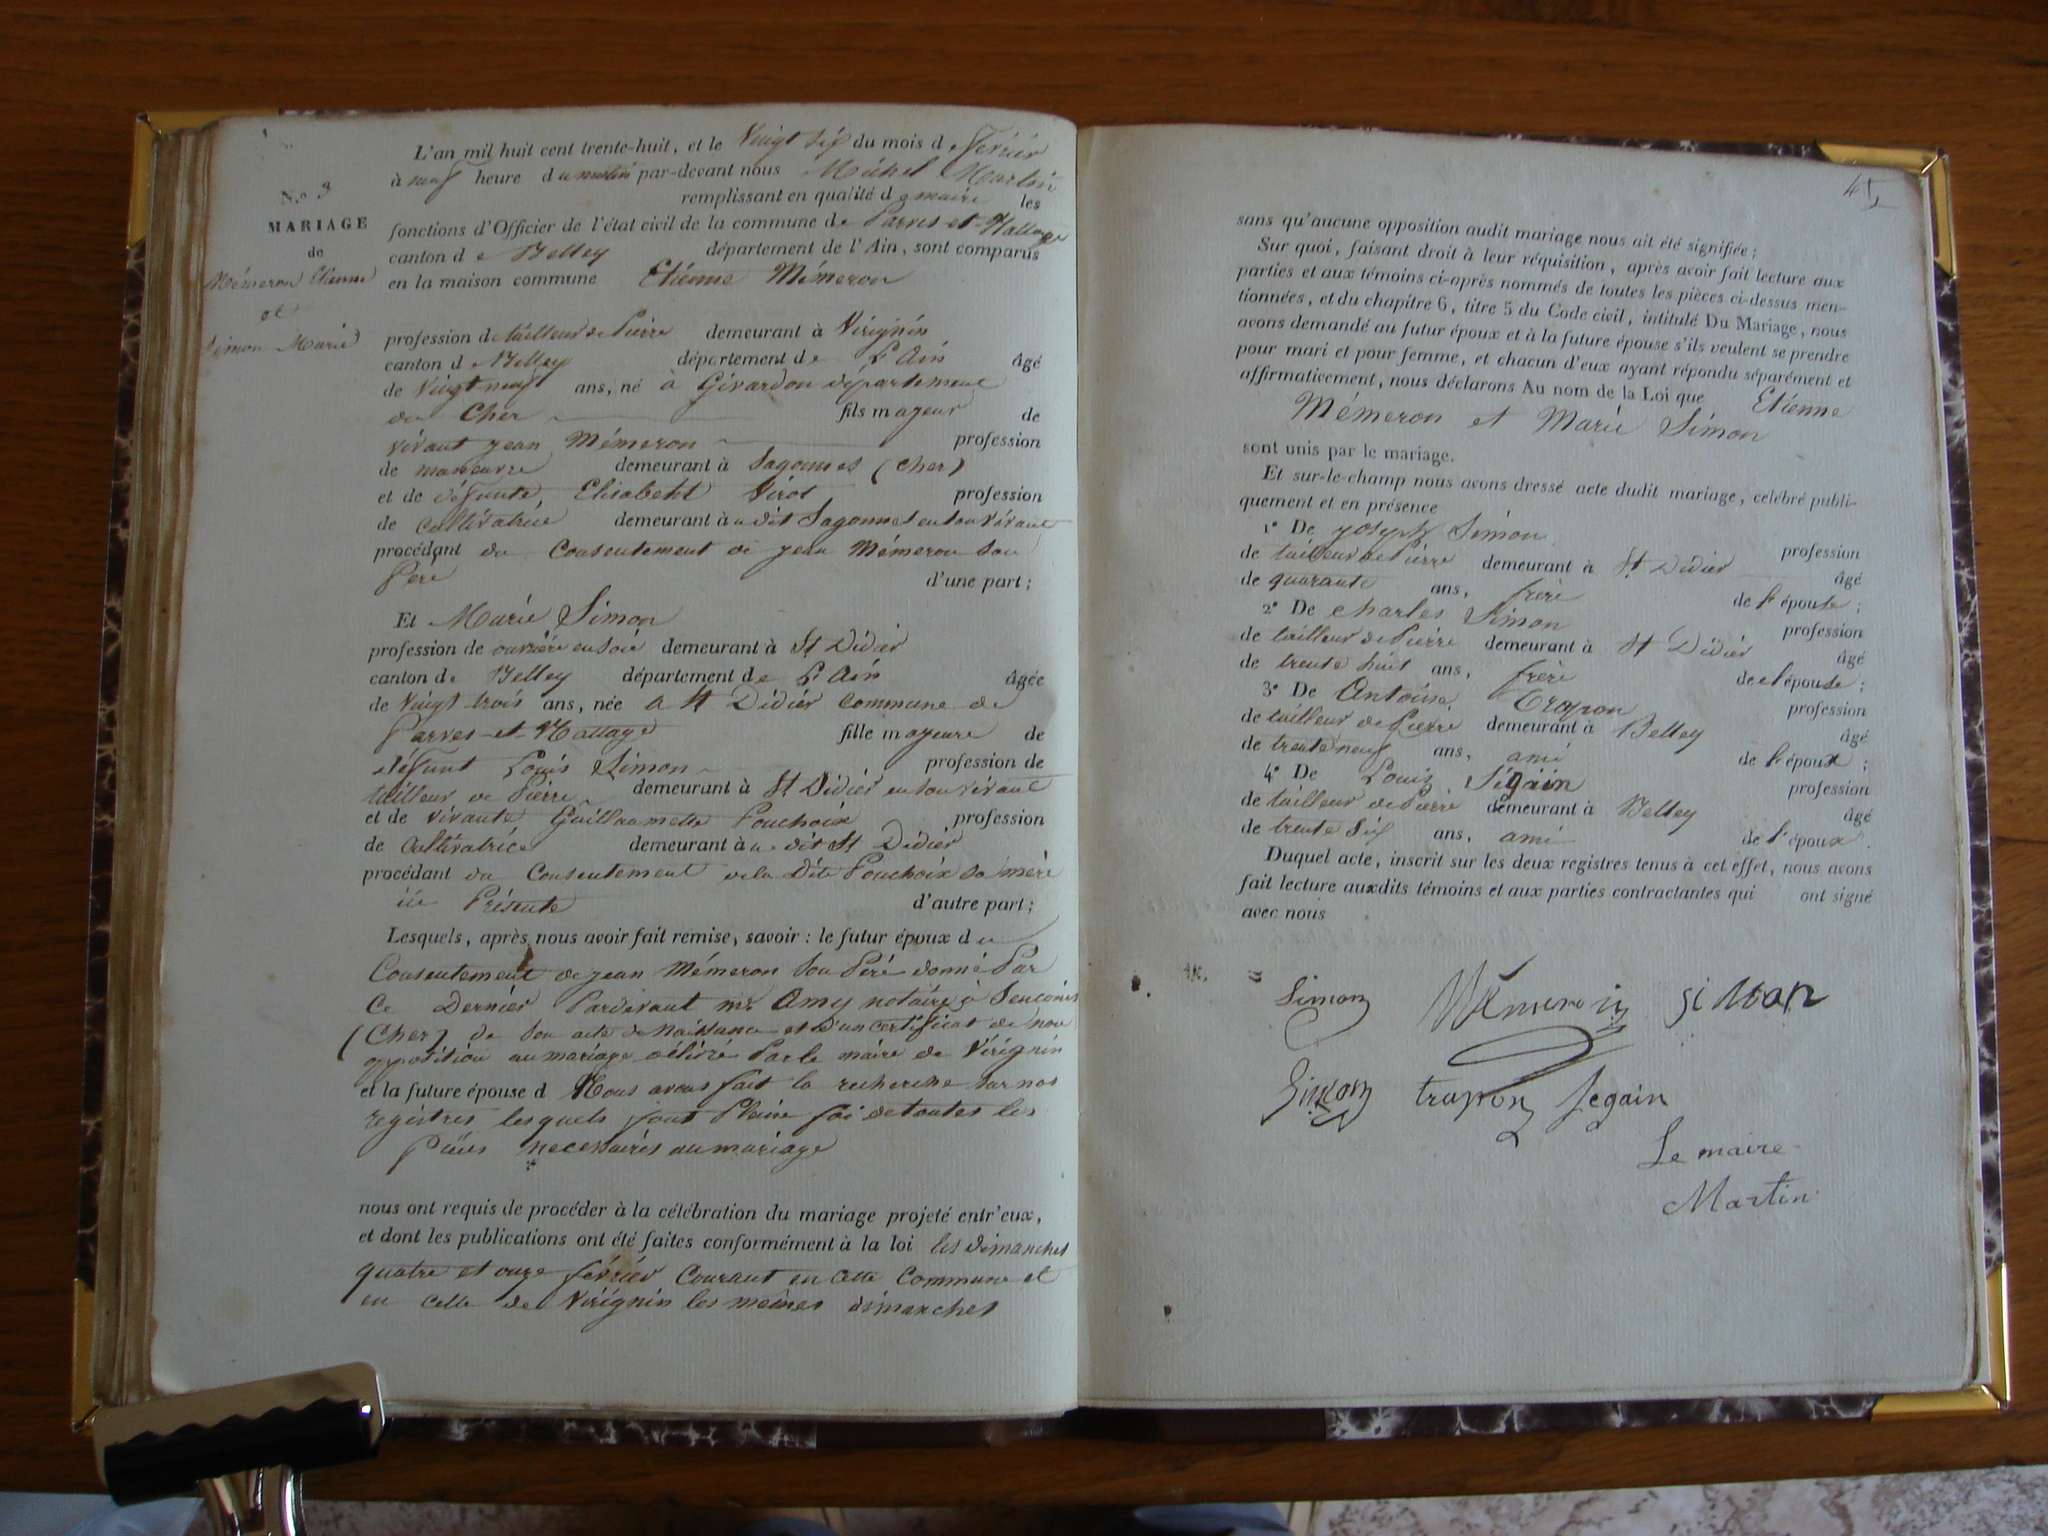 L'an mil huit cent trente-huit, et le Vingt six du mois de Février
à neuf heure du matin par-devant nous Michel Martin
remplissant en qualité de maire les
N.o 3
MARIAGE
de
Mémeron Etienne
et
Simon Marie
fonctions d'Officier de l'état civil de la commune de Parves-et-Nattage
canton de Belley département de l'Ain, sont comparus
en la maison commune Etiénne Mémeron
profession de tailleur de Pierre demeurant à Virignin
canton de Belley département de L'Ain âgé
de Vingt neuf ans, né à Givardon département
du Cher fils mayeur de
vivant jean Mémeron profession
de manœuvre demeurant à Sagonnes (Cher)
et de défunte Elisabeht Virot profession
de cultivatrice demeurant à u dit Sagonnes en son vivant
procédant du Consentement de jean Mémeron son
Pere d'une part;
Et Marie Simon
profession de ouvrière en soie demeurant à St Didier
canton de Belley département de L'Ain âgée
de Vingt trois ans, née a St Didier Commune de
Parves-et-Nattage fille mayeure de
défunt Louis Simon profession de
tailleur de Pierre demeurant à St Didier en son vivant
et de vivante Guillaumette Pouchoix profession
de Cultivatrice demeurant à u dit St Didier
procédant du Consentement de la Dite Pouchoix sa mère
ici Présente d'autre part;
Lesquels, après nous avoir fait remise, savoir : le futur époux du
Consentement de jean Mémeron son Péré donné Par
Ce Dernier Pardevant me Amy notaire à Sancoins
(Cher) de son acte de Naissance et d'un certificat de non
opposition au mariage délivré Par le maire de Virignin
et la future épouse d Nous avons fait la recherche sur nos
registres lesquels font Pleine foi de toutes les
Pièces necessaires au mariage
nous ont requis de procéder à la célébration du mariage projeté entr'eux,
et dont les publications ont été faites conformément à la loi les dimanches
quatre et onze février Courant en cette Commune et
en celle de Virignin les mêmes dimanches
45
sans qu'aucune opposition audit mariage nous ait été signifiée;
Sur quoi, faisant droit à leur réquisition, après avoir fait lecture aux
parties et aux témoins ci-après nommés de toutes les pièces ci-dessus men-
tionnées, et du chapitre 6, titre 5 du Code civil, intitulé Du Mariage, nous
avons demandé au futur époux et à la future épouse s'ils veulent se prendre
pour mari et pour femme, et chacun d'eux ayant répondu séparément et
affirmativement, nous déclarons Au nom de la Loi que Etienne
Mémeron et Marie Simon
sont unis par le mariage.
Et sur-le-champ nous avons dressé acte dudit mariage, célébré publi-
quement et en présence
1° De joseph Simon profession
de tailleur de Pierre demeurant à St Didier âgé
de quarante ans, frère de l'épouse;
2° De Charles Simon profession
de tailleur de Pierre demeurant à St Didier âgé
de trente huit ans, frère de l'épouse;
3° De Antoine Trapon profession
de tailleur de Pierre demeurant à Belley âgé
de trente neuf ans, ami de l'époux;
4° De Louis Ségain profession
de tailleur de Pierre demeurant à Belley âgé
de trente Six ans, ami de l'époux.
Duquel acte, inscrit sur les deux registres tenus à cet effet, nous avons
fait lecture auxdits témoins et aux parties contractantes qui ont signé
avec nous
Simon Mémeron Simon
Simon trapon Segain
Le maire
Martin